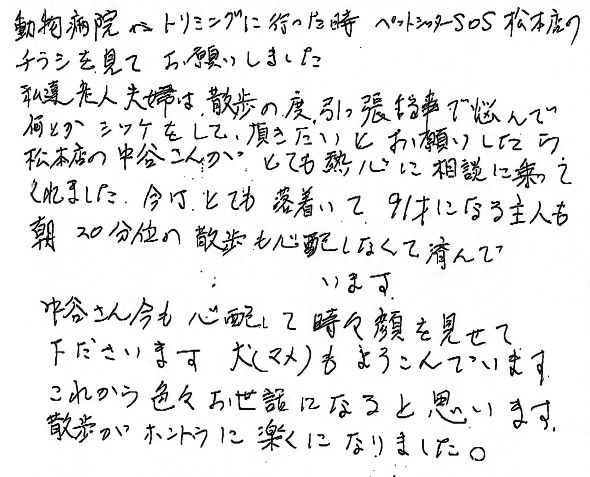 動物病院へトリミングに行った時 ペットシッターSOS 松本店の
チラシを見て お願いしました
私達老人夫婦は、散歩の度、引っ張る事で悩んで
何とかシツケをして、頂きたいとお願いしたら
松本店の中谷さんが とても熱心に相談に乗って
くれました。今は、とても 落着いて 91才になる主人も
朝 20分位の散歩も心配しなくて済んで
います。
中谷さん今も心配して時々顔を見せて
下ださいます 犬(マメ)もよろこんでいます
これから色々お世話になると思います。
散歩がホントウに楽くになりました。